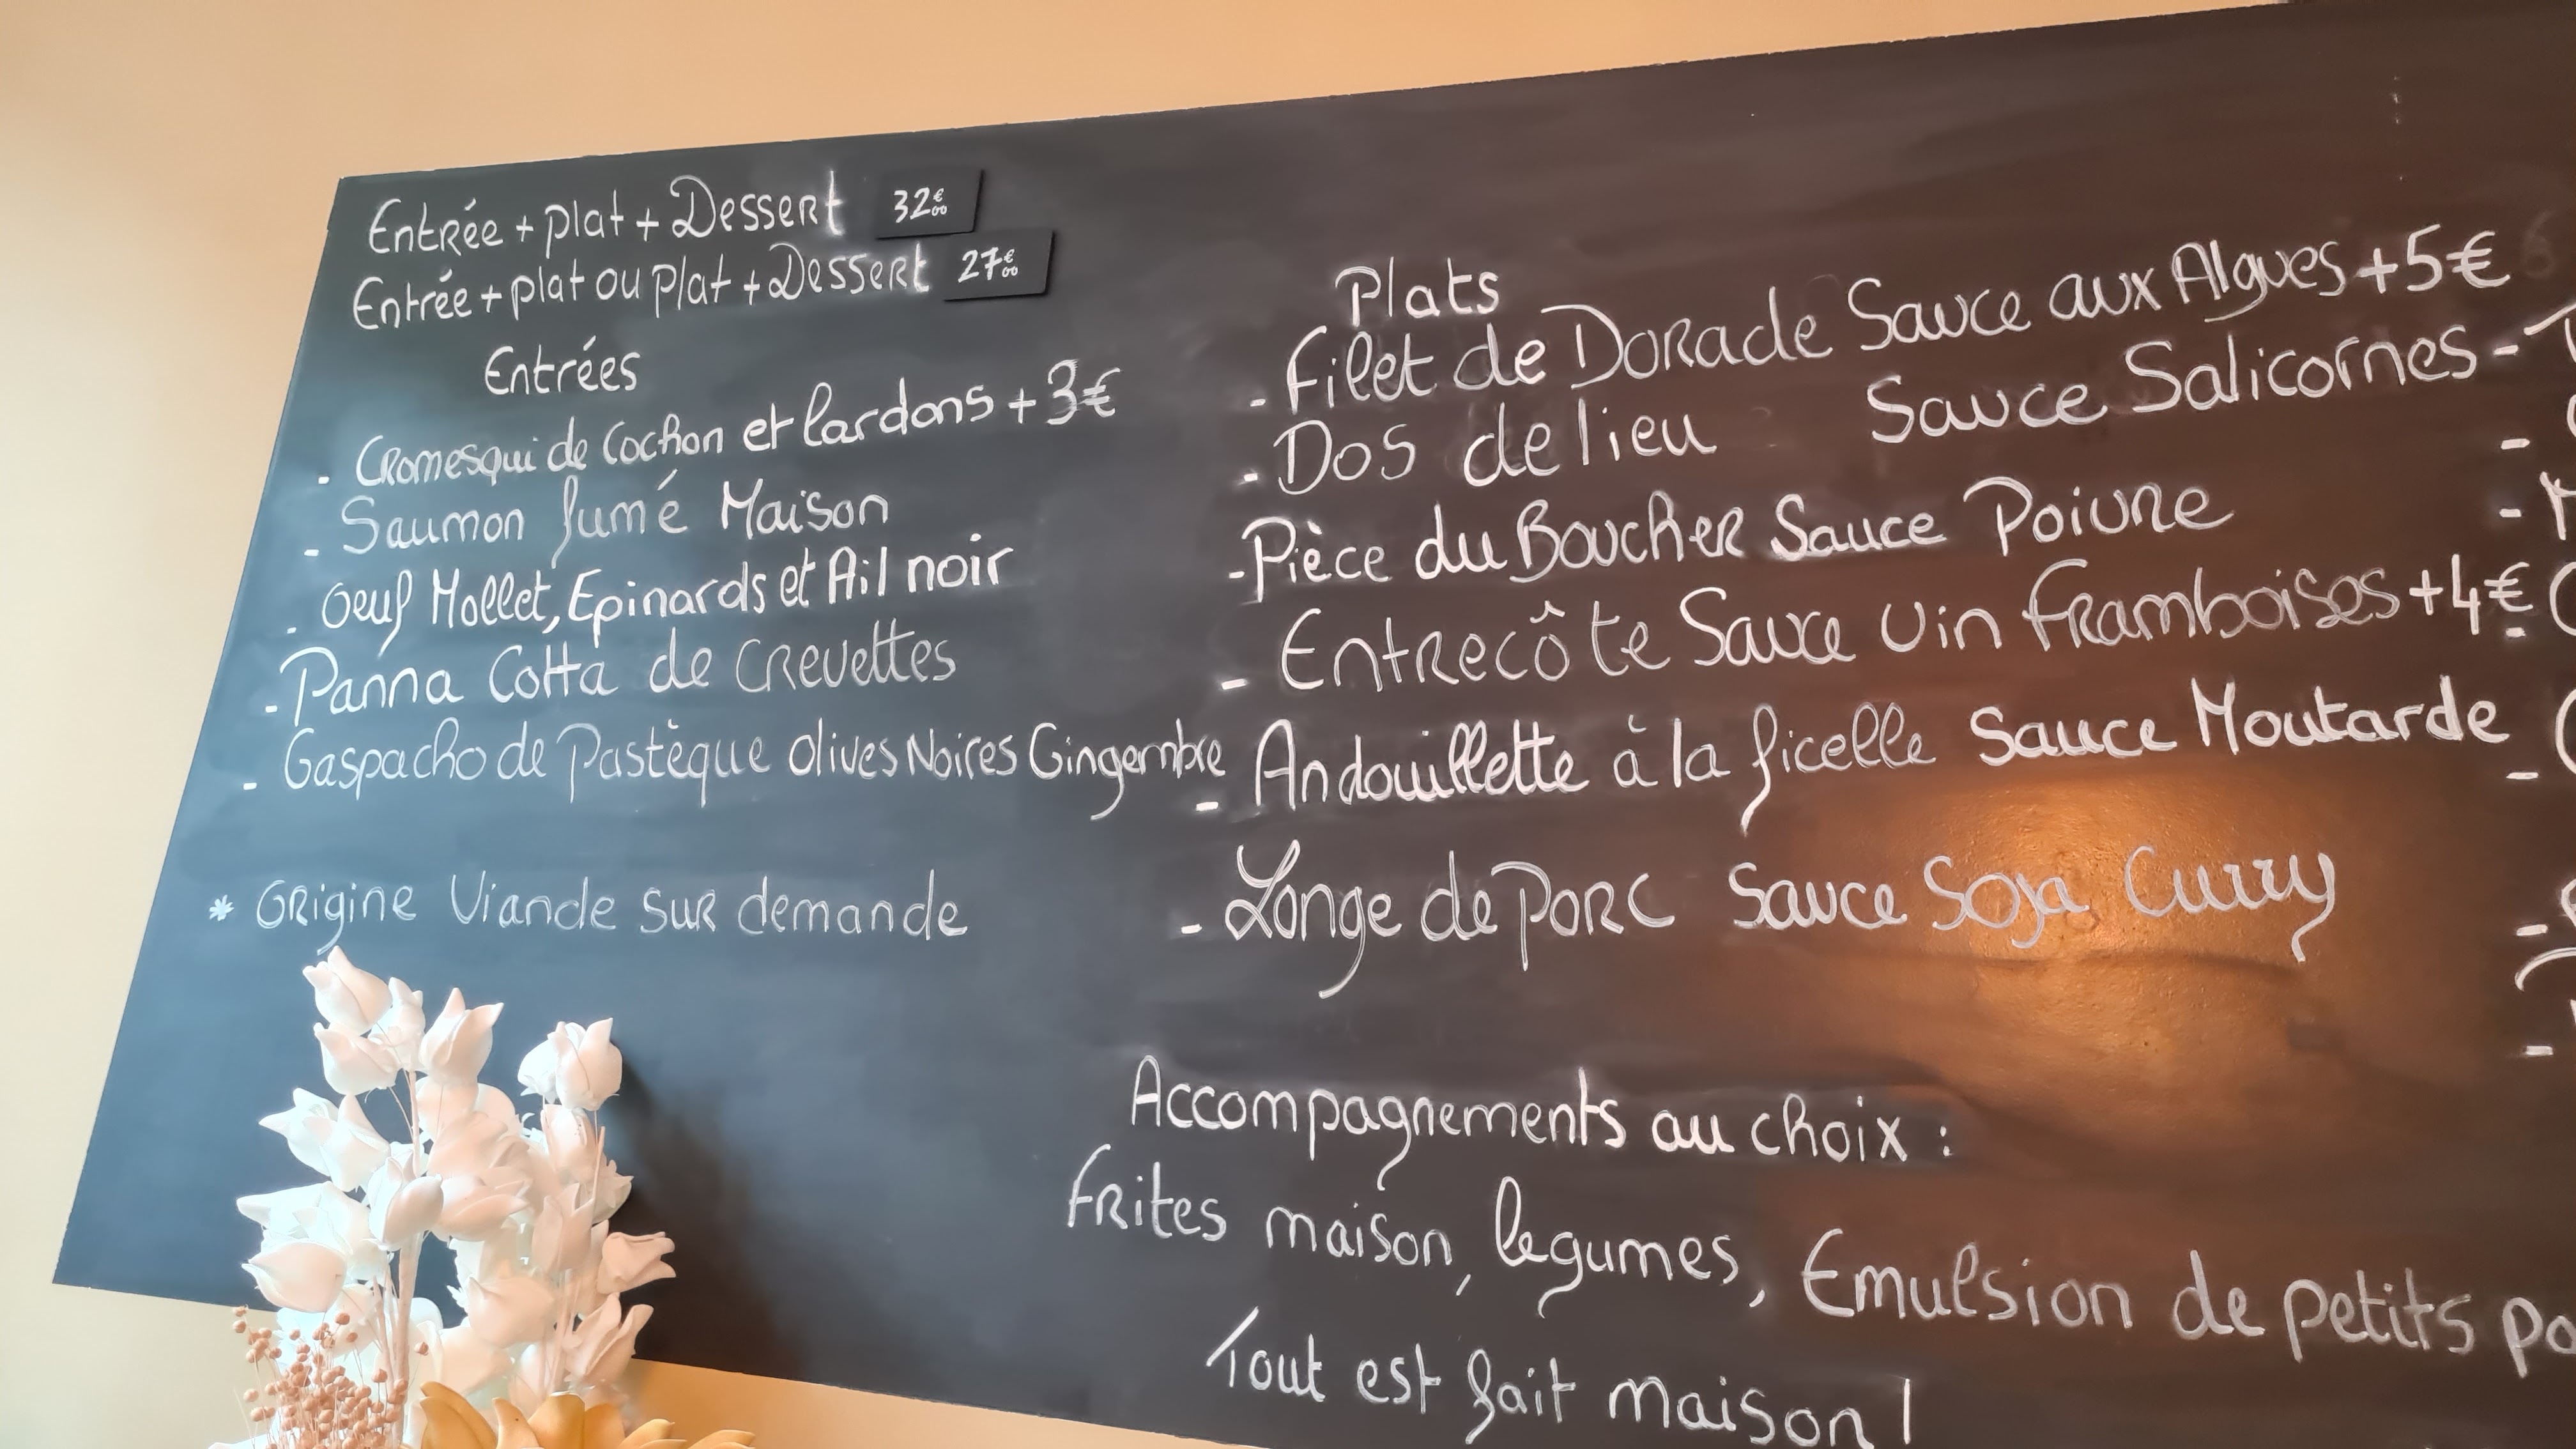 Entrée + plat + Dessert 32€00
Entrée + plat ou plat + Dessert 27€00
Entrées
- Cromesqui de Cochon et lardons + 3€
- Saumon fumé Maison
- Oeuf Mollet, Epinards et Ail noir
- Panna Cotta de Crevettes
- Gaspacho de Pastèque olives Noires Gingembre
* Origine Viande sur demande
Plats
- Filet de Dorade Sauce aux Algues +5€
- Dos de lieu Sauce Salicornes
- Pièce du Boucher Sauce Poivre
- Entrecôte Sauce Vin Framboises +4€
- Andouillette à la ficelle Sauce Moutarde
- Longe de Porc Sauce Soja Curry
Accompagnements au choix :
Frites maison, legumes, Emulsion de petits
Tout est fait maison !